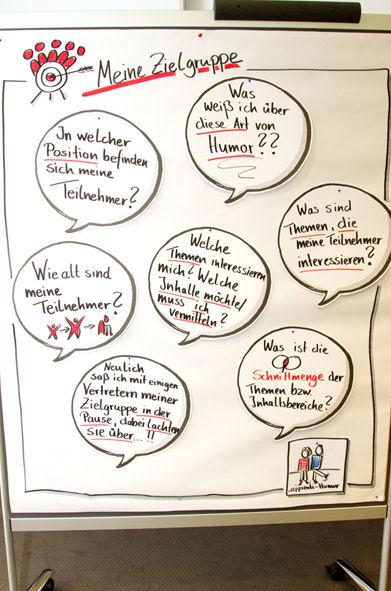 Meine Zielgruppe
Was
weiß ich über
diese Art von
Humor??
In welcher
Position befinden
sich meine
Teilnehmer?
Was sind
Themen, die
meine Teilnehmer
interessieren?
Welche
Themen interessieren
mich? Welche
Inhalte möchte/
muss ich
vermitteln?
Wie alt sind
meine
Teilnehmer?
Was ist die
Schnittmenge der
Themen bzw.
Inhaltsbereiche?
Neulich
saß ich mit einigen
Vertretern meiner
Zielgruppe in der
Pause, dabei lachten
sie über...!!
-Humor